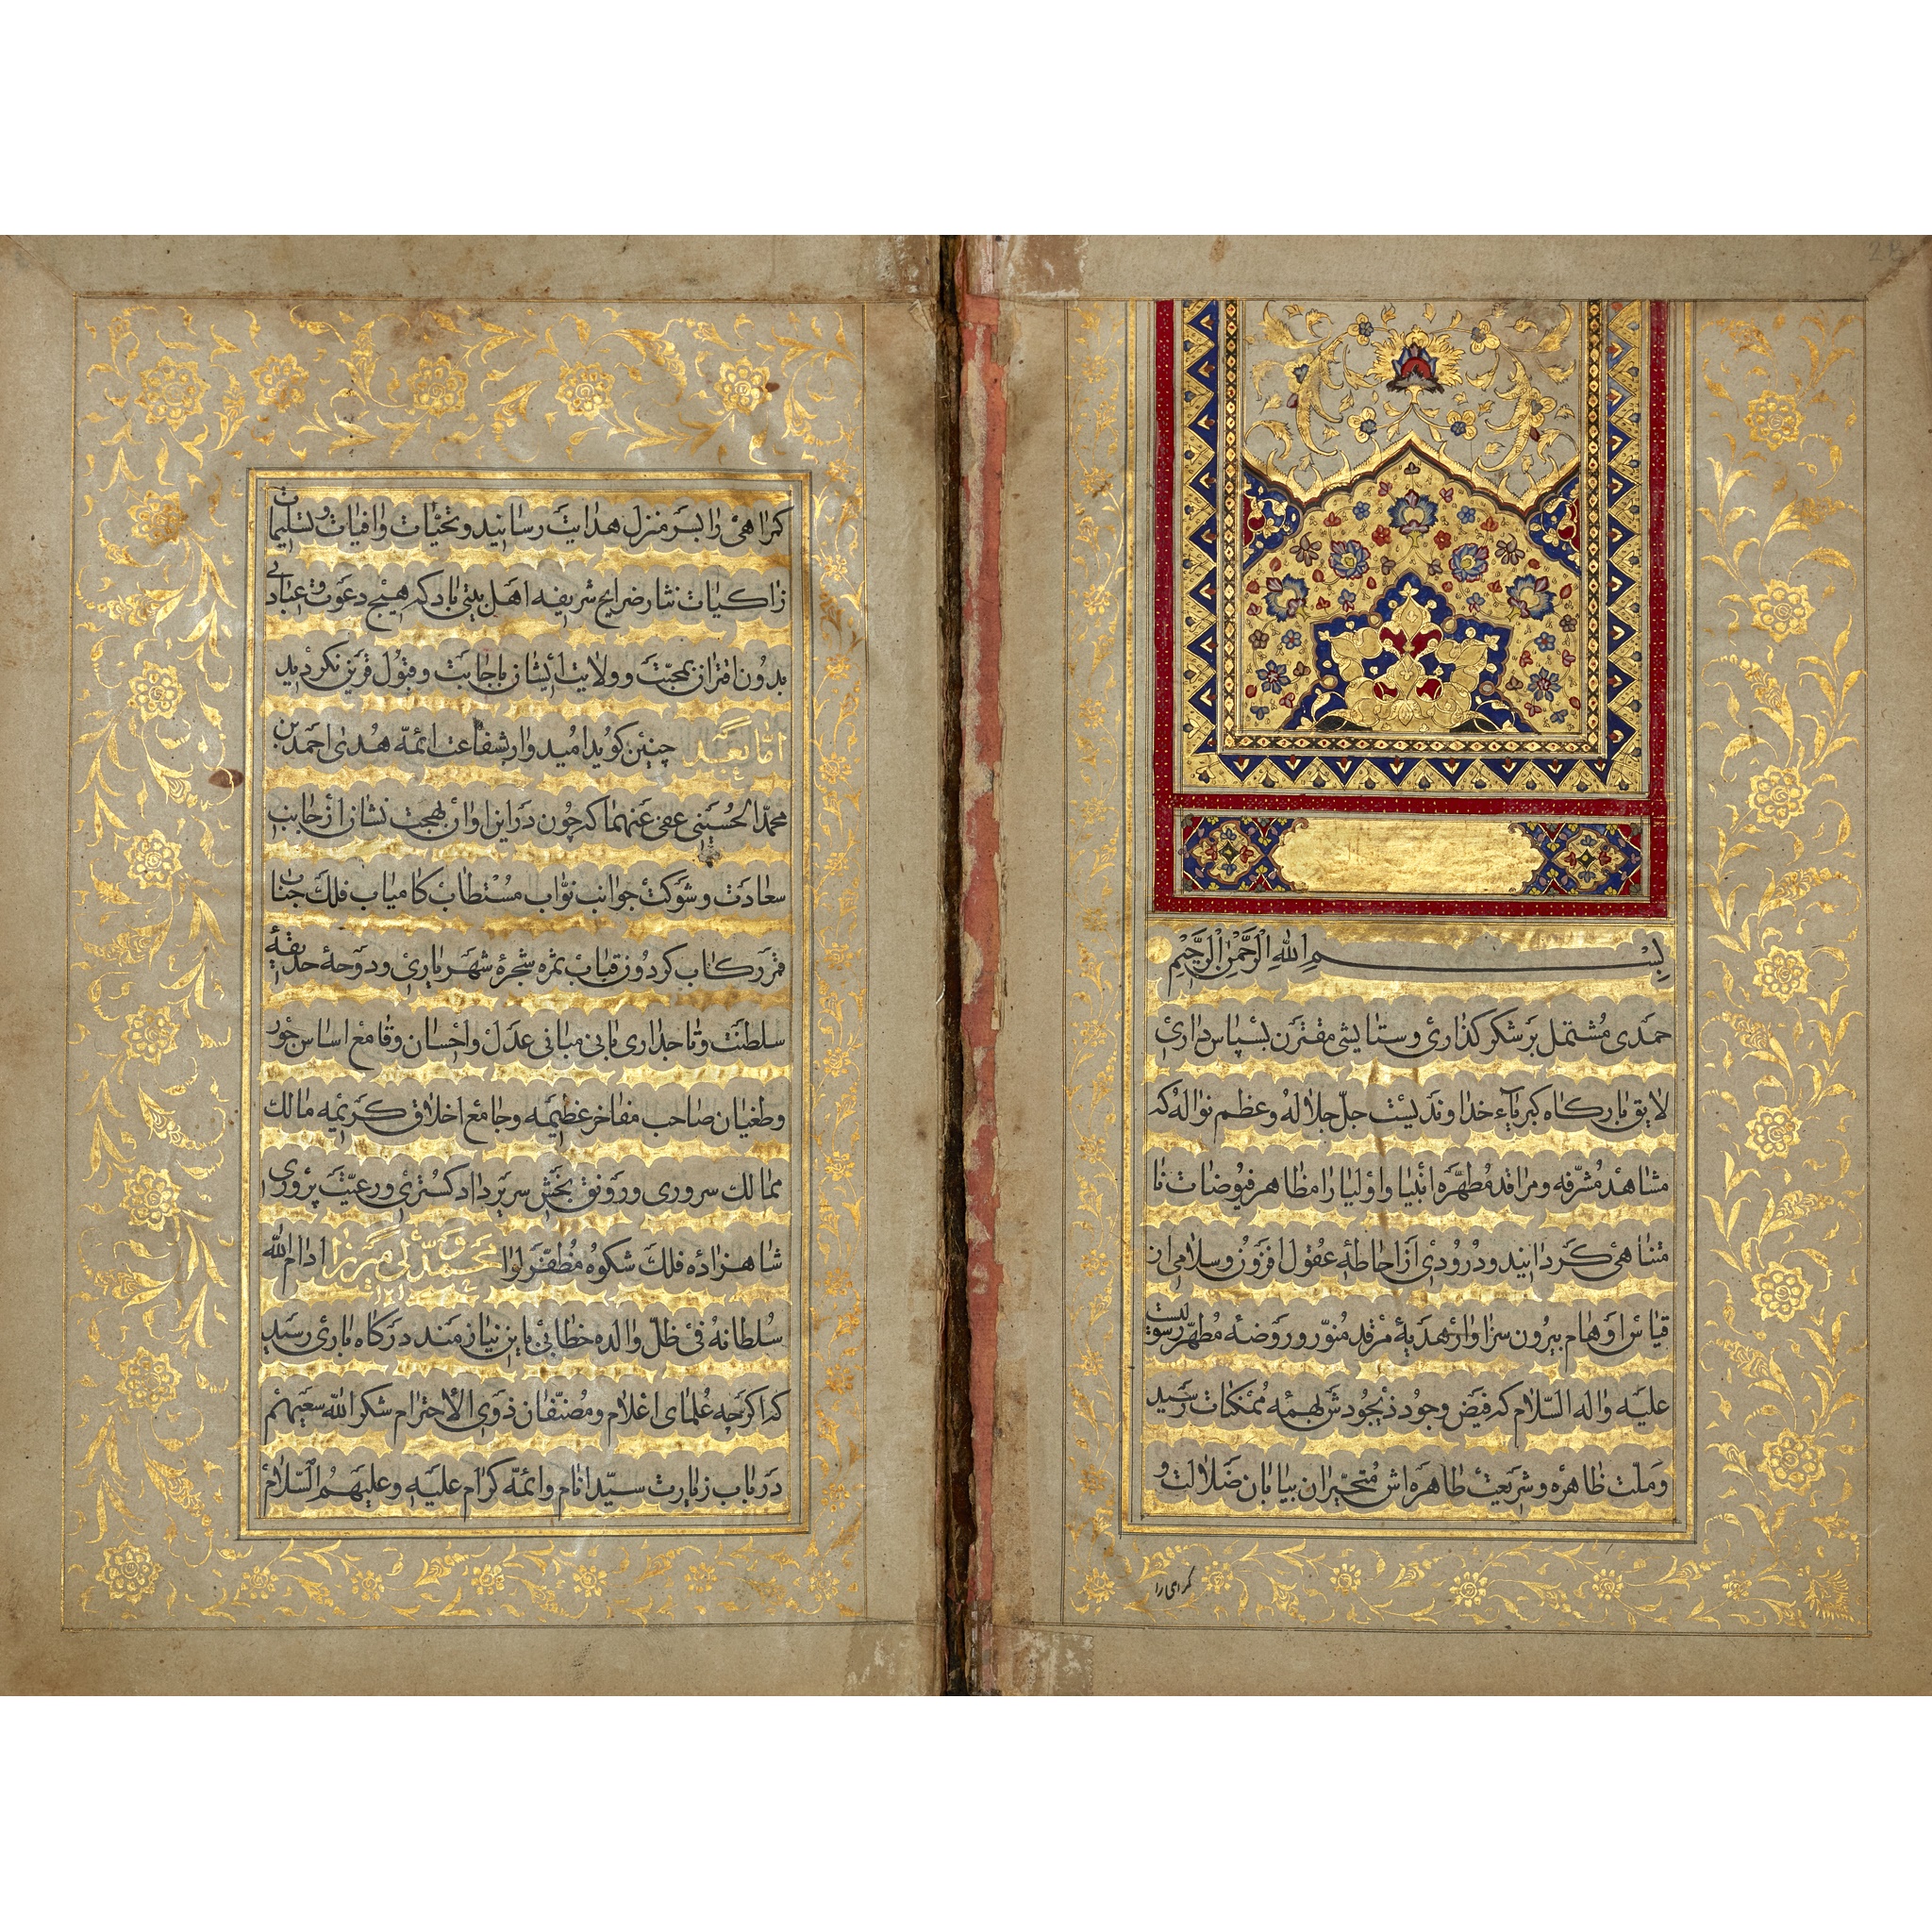 بسم الله الرحمن الرحیم
حمدی مشتمل بر شکر کذاری و ستایشی مقترن بسپاس داری
لایق بارکاه کبریاء خداوندیست جل جلاله و عظم نواله که
مشاهد مشرفه و مراقد مطهره انبیا و اولیا را مظاهر فیوضات نا
متناهی کردانید و درودی از احاطه عقول افزون و سلامی از
قیاس اوهام بیرون سزاوار هدیه مرقد منور و روضه مطهر رسولیست
علیه و اله السلام که فیض وجود ذیجودش بهمه ممکنات رسید
و ملت ظاهره و شریعت طاهره اش متحیران بیابان ضلالت و
کمراهی را
کمراهی را بسر منزل هدایت رسانید و تحیات وافیات و تسلیمات
زاکیات نثار ضرایح شریفه اهل بیتی باد که هیچ دعوت و عبادتی
بدون اقتران بمحبت و ولایت ایشان باجابت و قبول قرین نکردید
اما بعد چنین کوید امیدوار شفاعت ائمه هدی احمد بن
محمد الحسینی عفی عنهما که چون در این اوان بهجت نشان از جانب
سعادت و شوکت جوانب نواب مستطاب کامیاب فلک جناب
قمر رکاب کردون قباب ثمره شجره شهریاری و دوحه حدیقه
سلطنت و تاجداری بانی مبانی عدل و احسان و قامع اساس جور
و طغیان صاحب مفاخر عظیمه و جامع اخلاق کریمه مالک
ممالک سروری و رونق بخش سریر داد کستری و رعیت پروری
شاهزاده فلک شکوه مظفر لوا محمد ولی میرزا ادام الله
سلطانه فی ظل والده خطابی باین نیازمند درکاه باری رسید
که اکرچه علمای اعلام و مصنفان ذوی الاحترام شکر الله سعیهم
در باب زیارت سید انام و ائمه کرام علیه و علیهم السلام